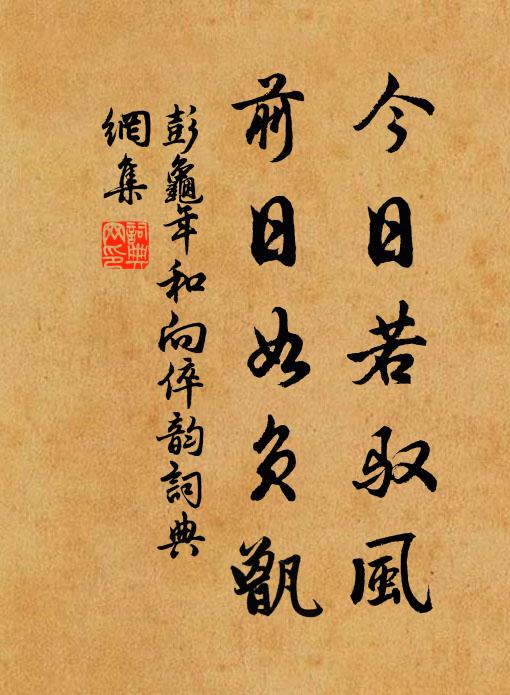 今日若驭風
前日如负甑
彭龜年和向倅韵詞典
網集
詞典
网印